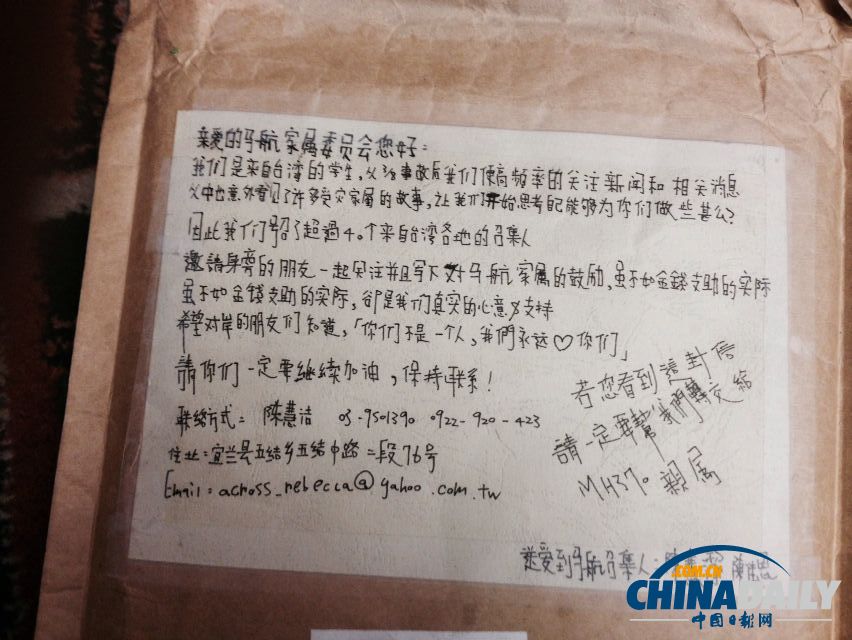 亲爱的马航家属委员会您好：
我们是来自台湾的学生，从3/8事故后我们便高频率的关注新闻和相关消息
从中也意外看见了许多受灾家属的故事，让我们开始思考自己能够为你们做些甚么？
因此我们号召了超過40个来自台湾各地的召集人
邀請身旁的朋友一起关注并且写下对马航家属的鼓励，虽不如金錢支助的实际
虽不如金錢支助的实际，卻是我们真实的心意&支持
希望对岸的朋友们知道，「你们不是一个人，我們永远♡你们」
請你们一定要継续加油，保持联系！
联絡方式： 陈慧洁 03-9501390 0922-920-423
住址：宜兰县五结乡五结中路二段76号
Email：across_rebecca@yahoo.com.tw
若您看到這封信
請一定要幫我們轉交給
MH370 親属
愛受到马航召集人：
.COM.CN
CHINA DAILY
中国日报网